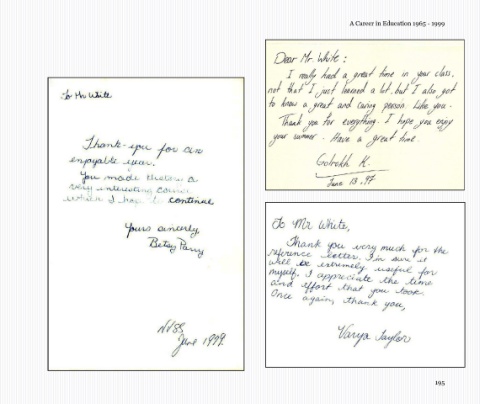 A Career in Education 1965 - 1999
To Mr White
Thank-you for an
enjoyable year.
You made History a
very interesting course
which I hope to continue
Yours sincerely
Betsy Parry
NVSS
June 1999.
Dear Mr. White :
I really had a great time in your class,
not that I just learned a lot, but I also get
to know a great and caring person. Like you.
Thank you for everything. I hope you enjoy
your summer. Have a great time.
Golrokh K.
June 18, 97
To Mr White,
Thank you very much for the
reference letter. I'm sure it
will be extremely useful for
myself. I appreciate the time
and effort that you took.
Once again, thank you,
Varya Taylor
195